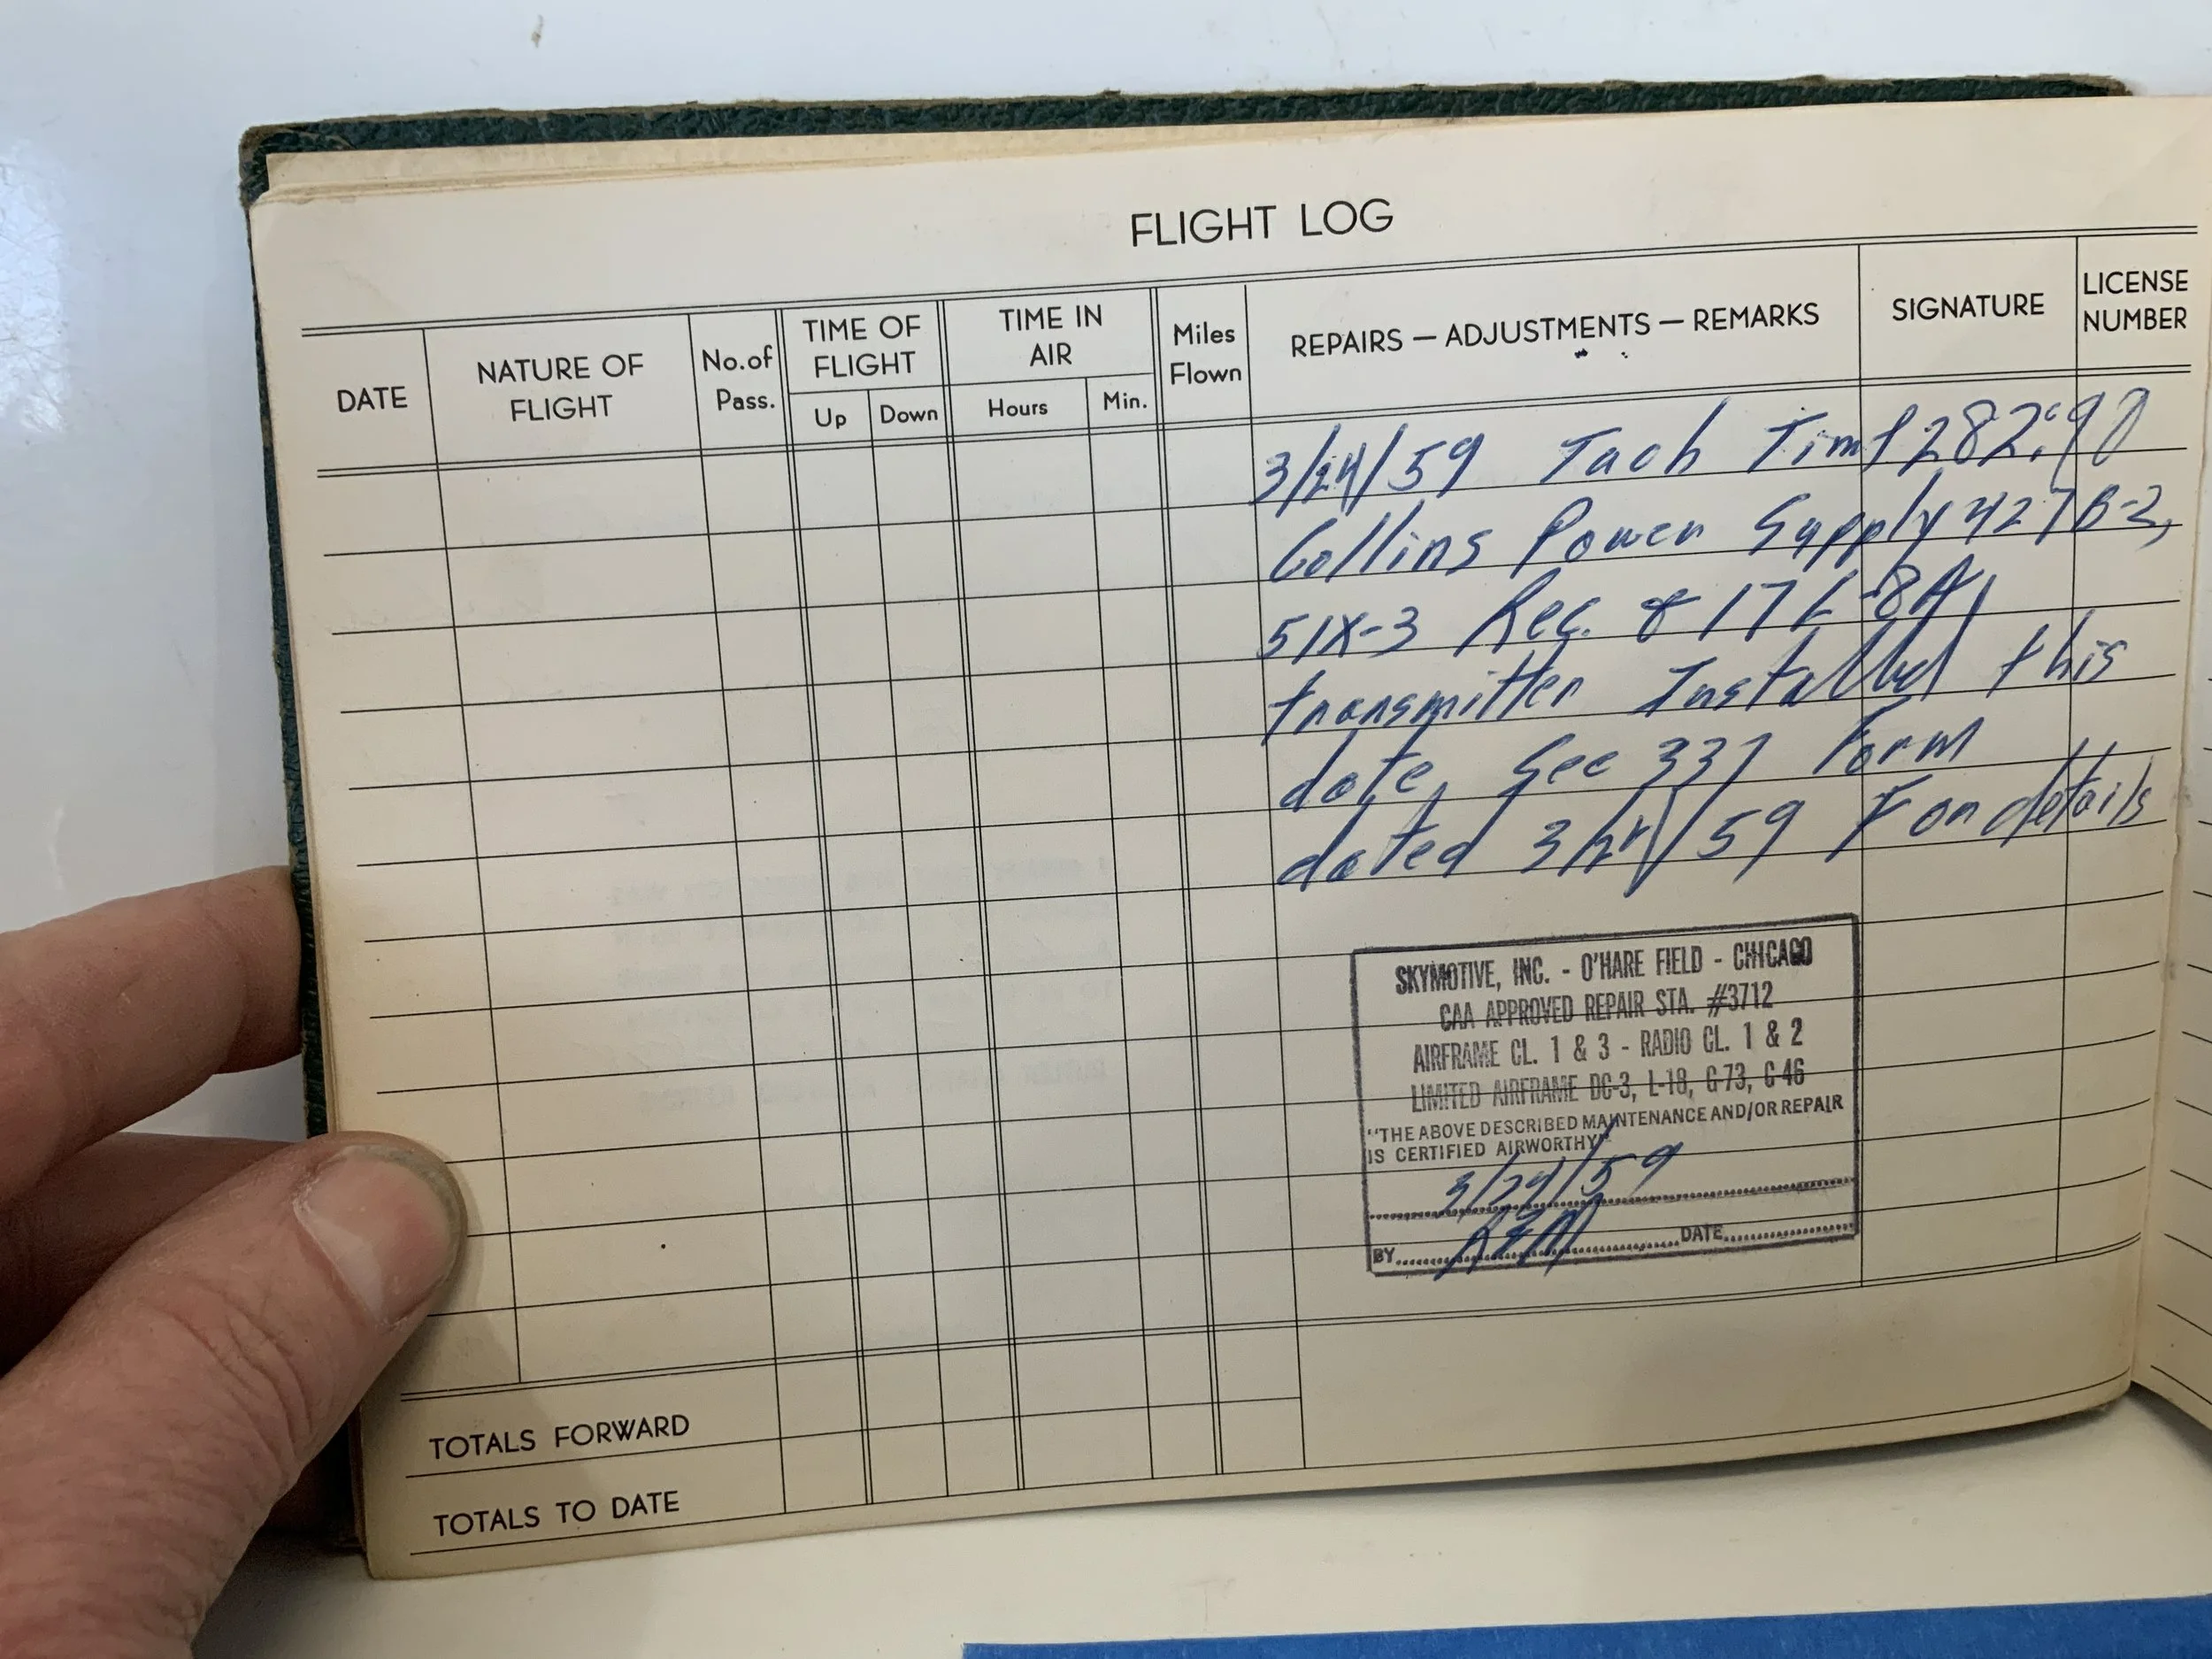 FLIGHT LOG
DATE
NATURE OF FLIGHT
No. of Pass.
TIME OF FLIGHT
Up Down
TIME IN AIR
Hours Min.
Miles Flown
REPAIRS — ADJUSTMENTS — REMARKS
SIGNATURE
LICENSE NUMBER
3/24/59 Tach Time 282.90
Collins Power Supply 427B-2,
51X-3 Rec. & 17L-8A
transmitter Installed this
date. See 337 Form
dated 3/24/59 For details
SKYMOTIVE, INC. - O'HARE FIELD - CHICAGO
CAA APPROVED REPAIR STA. #3712
AIRFRAME CL. 1 & 3 - RADIO CL. 1 & 2
LIMITED AIRFRAME DC-3, L-18, G-73, C-46
"THE ABOVE DESCRIBED MAINTENANCE AND/OR REPAIR
IS CERTIFIED AIRWORTHY"
3/24/59
BY DATE
TOTALS FORWARD
TOTALS TO DATE